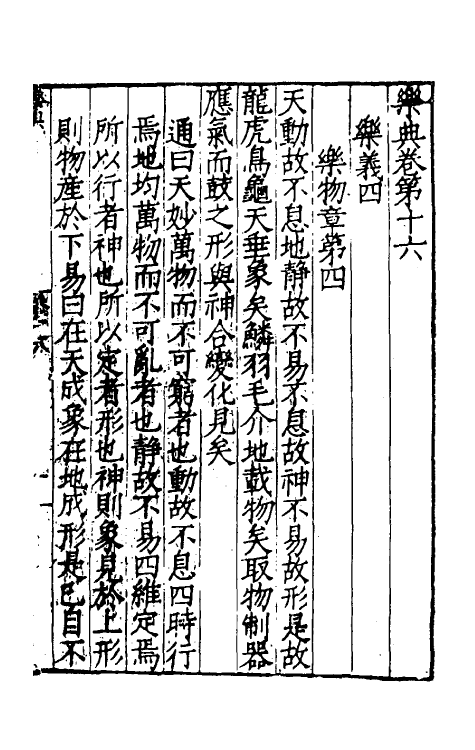 樂典卷第十六
樂義四
樂物章第四
天動故不息地静故不易不息故神不易故形是故
龍虎鳥龜天垂象矣鱗羽毛介地載物矣取物制器
應氣而鼓之形與神合變化見矣
通曰天妙萬物而不可窮者也動故不息四時行
焉地均萬物而不可亂者也静故不易四維定焉
所以行者神也所以定者形也神則象見於上形
則物產於下易曰在天成象在地成形是已自不